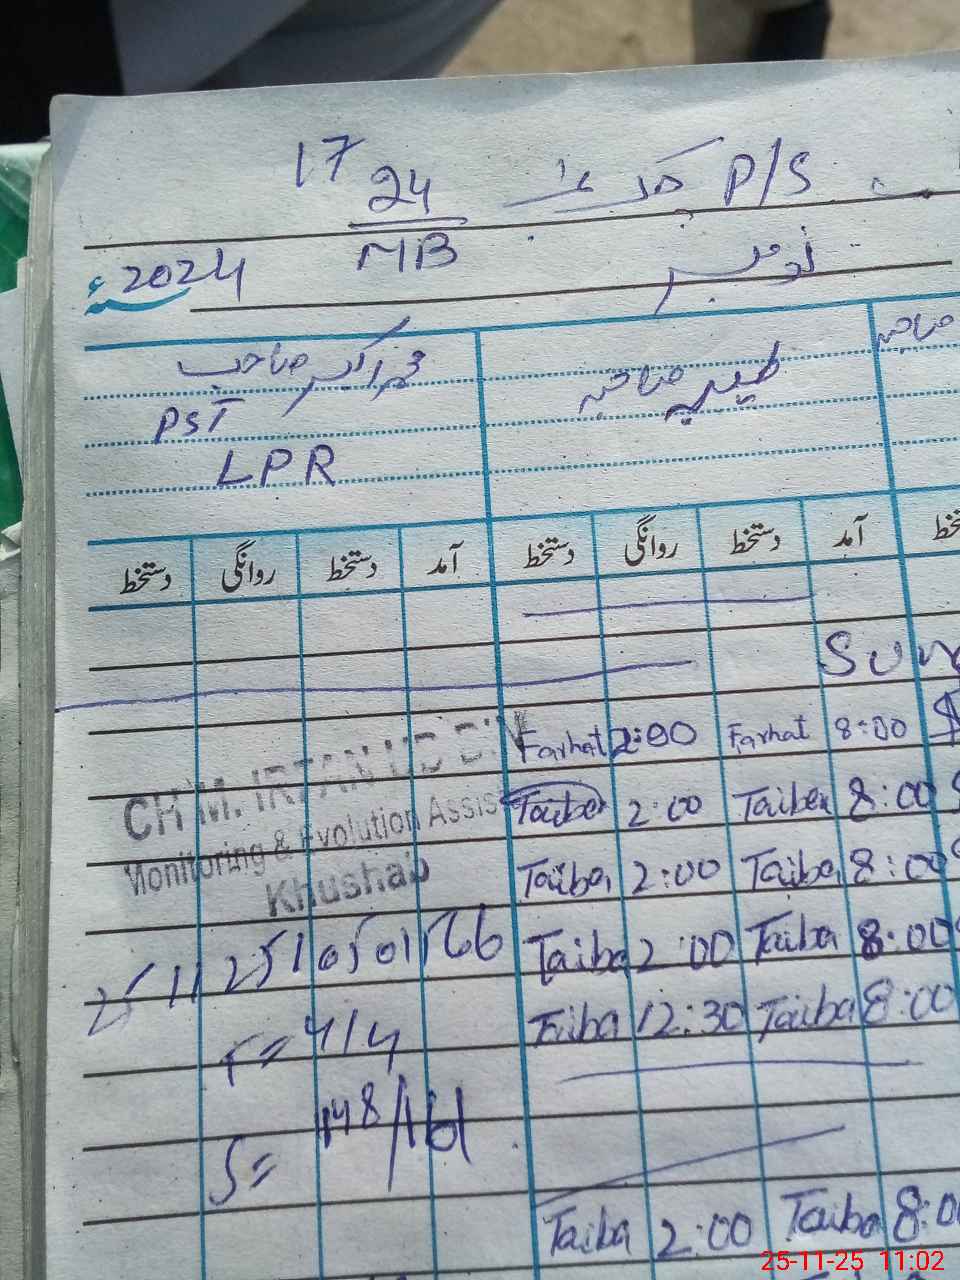 17 24/MB P/S
نومبر 2024ء
طیبہ صاحبہ
محمد اکبر صاحب
PST
LPR
آمد دستخط روانگی دستخط آمد دستخط روانگی دستخط
Farhat 2:00 Farhat 8:00
CH M. IRFAN UD DIN
Taiba 2:00 Taiba 8:00
Monitoring & Evolution Assis
Taiba 2:00 Taiba 8:00
Khushab
25 11 25 10501566 Taiba 2:00 Taiba 8:00
T= 4/4 Taiba 12:30 Taiba 8:00
S= 148/161
Taiba 2:00 Taiba 8:0
25-11-25 11:02